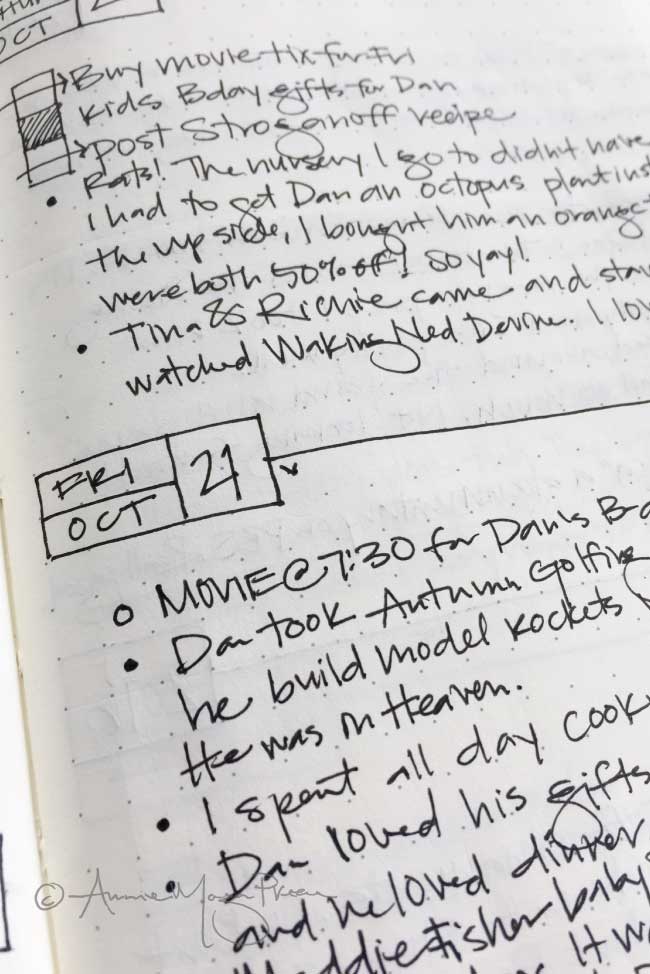 OCT
Buy movie tix for Fri
Kids Bday gifts for Dan
Post Stroganoff recipe
Rats! The nursery I go to didnt have
I had to get Dan an octopus plant ins
the up side, I bought him an orange
were both 50% off! So yay!
Tina & Richie came and stay
watched Waking Ned Devine. I lov
FRI
OCT
21
MOVIE @ 7:30 for Dan's B-d
Dan took Autumn Golfing
he build model rockets
He was in Heaven.
I spent all day cook
Dan loved his gifts
and he loved dinner
Fisher baby
It w
©